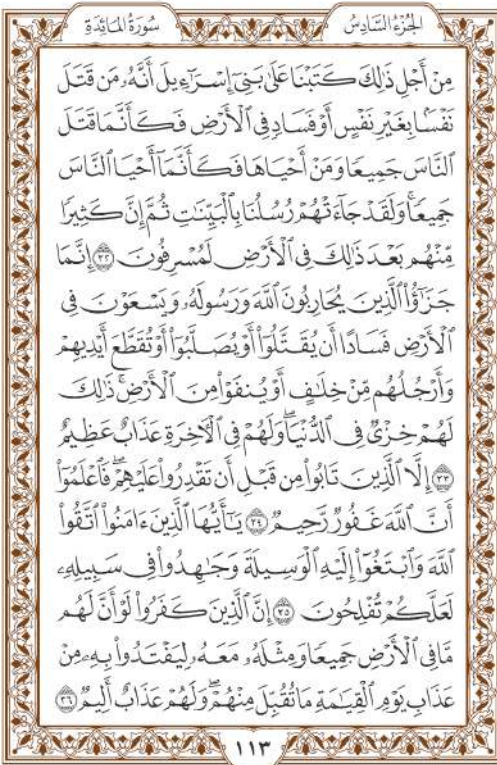 الجُزْءُ السَّادِسُ
سُورَةُ المَائِدَةِ
مِنْ أَجْلِ ذَٰلِكَ كَتَبْنَا عَلَىٰ بَنِيٓ إِسْرَٰٓءِيلَ أَنَّهُۥ مَن قَتَلَ
نَفْسَۢا بِغَيْرِ نَفْسٍ أَوْ فَسَادٍ فِي ٱلْأَرْضِ فَكَأَنَّمَا قَتَلَ
ٱلنَّاسَ جَمِيعًا وَمَنْ أَحْيَاهَا فَكَأَنَّمَآ أَحْيَا ٱلنَّاسَ
جَمِيعًاۚ وَلَقَدْ جَآءَتْهُمْ رُسُلُنَا بِٱلْبَيِّنَٰتِ ثُمَّ إِنَّ كَثِيرًا
مِّنْهُم بَعْدَ ذَٰلِكَ فِي ٱلْأَرْضِ لَمُسْرِفُونَ ٣٢ إِنَّمَا
جَزَٰٓؤُا۟ ٱلَّذِينَ يُحَارِبُونَ ٱللَّهَ وَرَسُولَهُۥ وَيَسْعَوْنَ فِي
ٱلْأَرْضِ فَسَادًا أَن يُقَتَّلُوٓا۟ أَوْ يُصَلَّبُوٓا۟ أَوْ تُقَطَّعَ أَيْدِيهِمْ
وَأَرْجُلُهُم مِّنْ خِلَٰفٍ أَوْ يُنفَوْا۟ مِنَ ٱلْأَرْضِۚ ذَٰلِكَ
لَهُمْ خِزْيٌ فِي ٱلدُّنْيَاۖ وَلَهُمْ فِي ٱلْأٓخِرَةِ عَذَابٌ عَظِيمٌ
٣٣ إِلَّا ٱلَّذِينَ تَابُوا۟ مِن قَبْلِ أَن تَقْدِرُوا۟ عَلَيْهِمْۖ فَٱعْلَمُوٓا۟
أَنَّ ٱللَّهَ غَفُورٌ رَّحِيمٌ ٣٤ يَٰٓأَيُّهَا ٱلَّذِينَ ءَامَنُوا۟ ٱتَّقُوا۟
ٱللَّهَ وَٱبْتَغُوٓا۟ إِلَيْهِ ٱلْوَسِيلَةَ وَجَٰهِدُوا۟ فِي سَبِيلِهِۦ
لَعَلَّكُمْ تُفْلِحُونَ ٣٥ إِنَّ ٱلَّذِينَ كَفَرُوا۟ لَوْ أَنَّ لَهُم
مَّا فِي ٱلْأَرْضِ جَمِيعًا وَمِثْلَهُۥ مَعَهُۥ لِيَفْتَدُوا۟ بِهِۦ مِنْ
عَذَابِ يَوْمِ ٱلْقِيَٰمَةِ مَا تُقُبِّلَ مِنْهُمْۖ وَلَهُمْ عَذَابٌ أَلِيمٌ ٣٦
١١٣